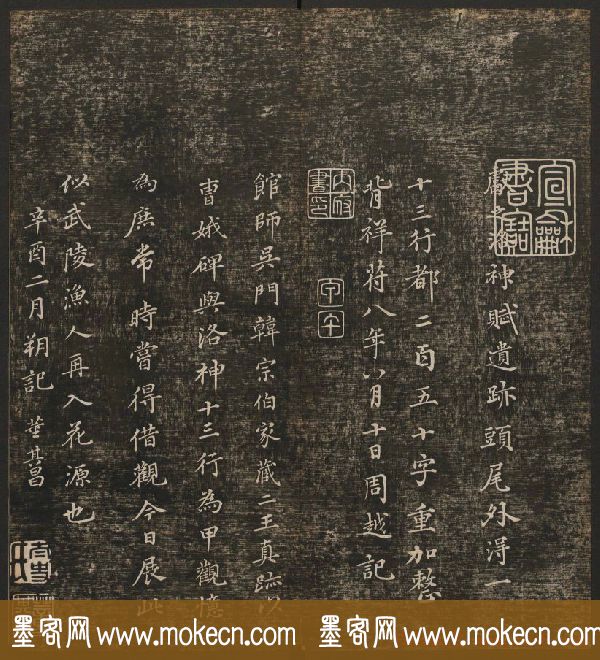 宣龢書寶
神賦遺跡頭尾外淂一
十三行都二百五十字重加整
背祥苻八年八月十日周越記
内府書印
館師吳門韓宗伯家藏二王真跡以
曹娥碑與洛神十三行為甲觀憶
為庶常時嘗得借觀今日展此
似武陵漁人再入花源也
辛酉二月朔記 董其昌
墨客网 www.mokecn.com 墨客网 www.mokecn.com